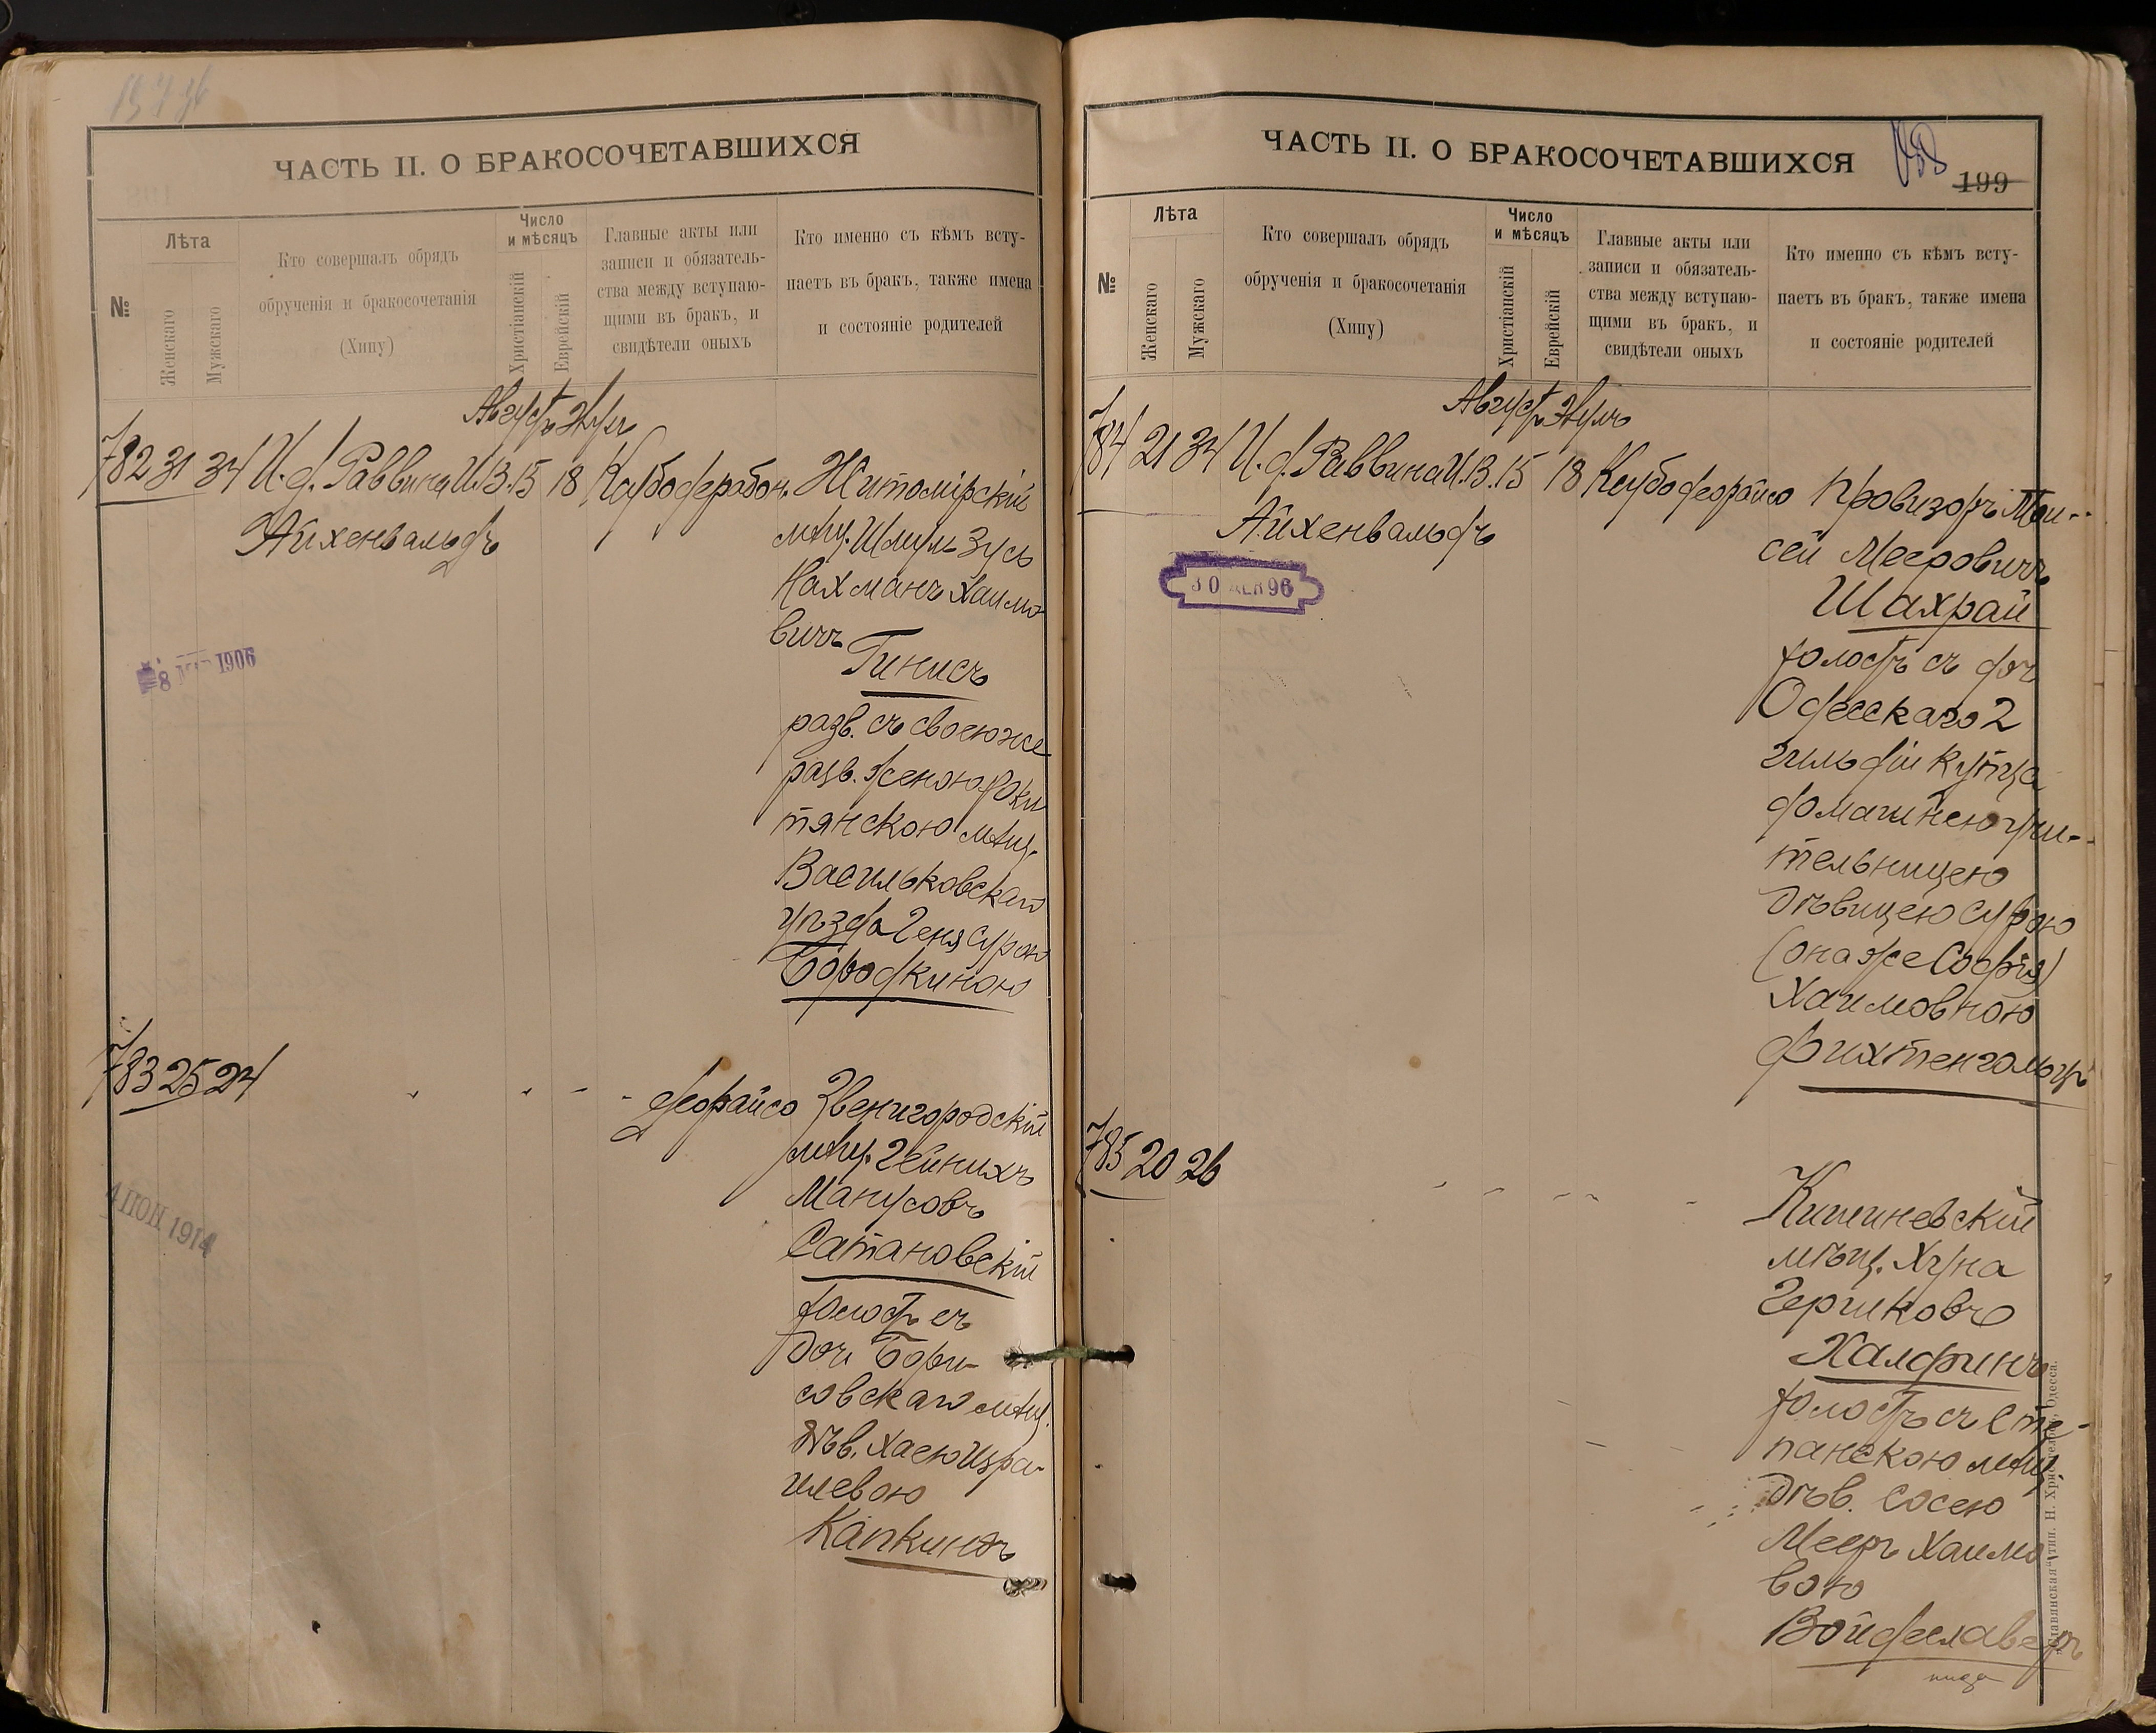 ЧАСТЬ II. О БРАКОСОЧЕТАВШИХСЯ
№
Лѣта
Женскаго
Мужскаго
Кто совершалъ обрядъ
обрученія и бракосочетанія
(Хипу)
Число
и мѣсяцъ
Христіанскій
Еврейскій
Главные акты или
записи и обязатель-
ства между вступаю-
щими въ бракъ, и
свидѣтели оныхъ
Кто именно съ кѣмъ всту-
паетъ въ бракъ, также имена
и состояніе родителей
Августъ Элулъ
782 31 34 И. д. Раввина И.В. 15 18 Житомірскій
Айхенвальдъ
мѣщ. Шмуль Зусь
Нахманъ Хаимо-
вичъ
Гинисъ
разв. съ своею же
разв. женою Роки
тянскою мѣщ.
Васильковскаго
уѣзда Геня Сурою
Бородкиною
8 1906
783 25 24
Звенигородскій
мѣщ. Гейнихъ
Манусовъ
Сатановскій
холостъ съ
доч. Бори-
совскаго мѣщ.
дѣв. Хасею Изра-
илевою
Капкинъ
4 ІЮН 1914
ЧАСТЬ II. О БРАКОСОЧЕТАВШИХСЯ
199
№
Лѣта
Женскаго
Мужскаго
Кто совершалъ обрядъ
обрученія и бракосочетанія
(Хипу)
Число
и мѣсяцъ
Христіанскій
Еврейскій
Главные акты или
записи и обязатель-
ства между вступаю-
щими въ бракъ, и
свидѣтели оныхъ
Кто именно съ кѣмъ всту-
паетъ въ бракъ, также имена
и состояніе родителей
Августъ Элулъ
784 21 34 И. д. Раввина И.В. 15 18 Провизоръ Мои-
Айхенвальдъ
сей Мееровичъ
Шахрай
холостъ съ доч
Одесскаго 2
гильдіи купца
домашнею учи-
тельницею
дѣвицею Сурою
(она же Софія)
Хаимовною
Фихтенгольцъ
30 96
785 20 26
Кишиневскій
мѣщ. Хуна
Гершковъ
Халфинъ
холостъ съ Сте-
панскою мѣщ.
дѣв. Сосею
Мееръ Хаимо
вою
Войдеславеръ
„Славянская“ тип. Н. Хрисогелосъ, Одесса.